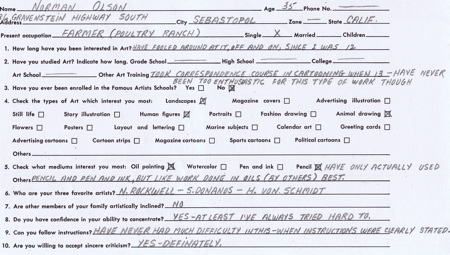 Name NORMAN OLSON Age 35 Phone No.
GRAVENSTEIN HIGHWAY SOUTH
Address City SEBASTOPOL Zone State CALIF.
Present occupation FARMER (POULTRY RANCH) Single X Married Children
1. How long have you been interested in Art? HAVE FOOLED AROUND AT IT, OFF AND ON, SINCE I WAS 12
2. Have you studied Art? Indicate how long. Grade School High School College
Art School Other Art Training TOOK CORRESPONDENCE COURSE IN CARTOONING WHEN 13 - HAVE NEVER
BEEN TOO ENTHUSISTIC FOR THIS TYPE OF WORK THOUGH
3. Have you ever been enrolled in the Famous Artists Schools? Yes No
4. Check the types of Art which interest you most: Landscapes Magazine covers Advertising illustration
Still life Story illustration Human figures Portraits Fashion drawing Animal drawing
Flowers Posters Layout and lettering Marine subjects Calendar art Greeting cards
Advertising cartoons Cartoon strips Magazine cartoons Sports cartoons Political cartoons
Others
5. Check what mediums interest you most: Oil painting Watercolor Pen and ink Pencil HAVE ONLY ACTUALLY USED
Others PENCIL AND PEN AND INK, BUT LIKE WORK DONE IN OILS (BY OTHERS) BEST.
6. Who are your three favorite artists? N. ROCKWELL - S. DONANOS - H. VON SCHMIDT
7. Are other members of your family artistically inclined? NO
8. Do you have confidence in your ability to concentrate? YES - AT LEAST I'VE ALWAYS TRIED HARD TO.
9. Can you follow instructions? HAVE NEVER HAD MUCH DIFFICULTY IN THIS - WHEN INSTRUCTIONS WERE CLEARLY STATED.
10. Are you willing to accept sincere criticism? YES - DEFINATELY.